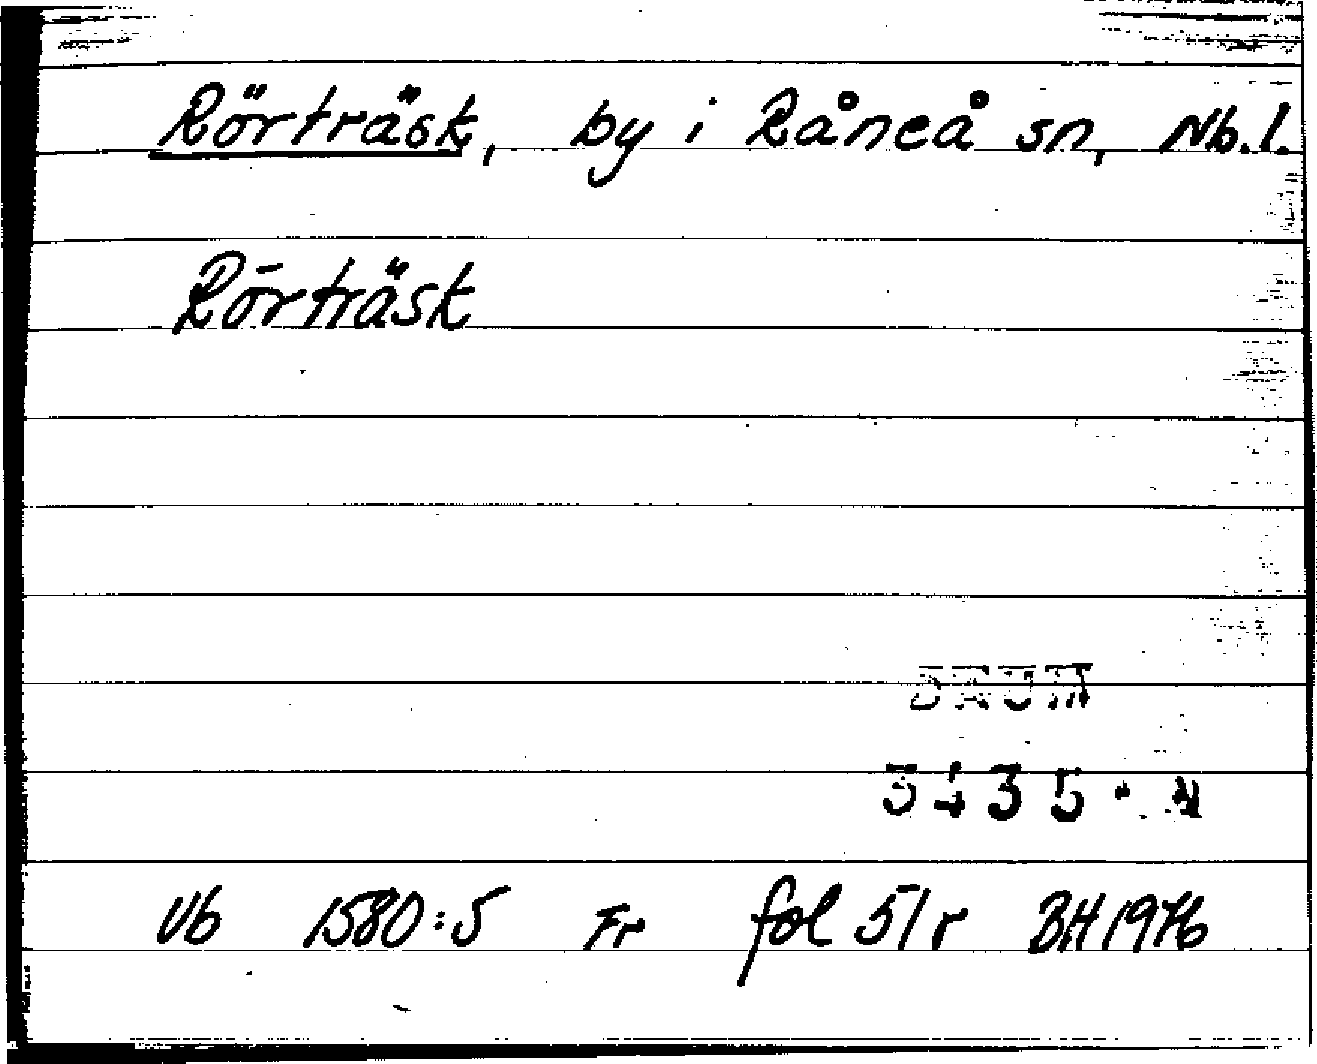 Rörträsk, by i Råneå sn, Nb.l.
Rörträsk
DAUM
3435
Vb 1580:5 Fr fol 51r BH 1976